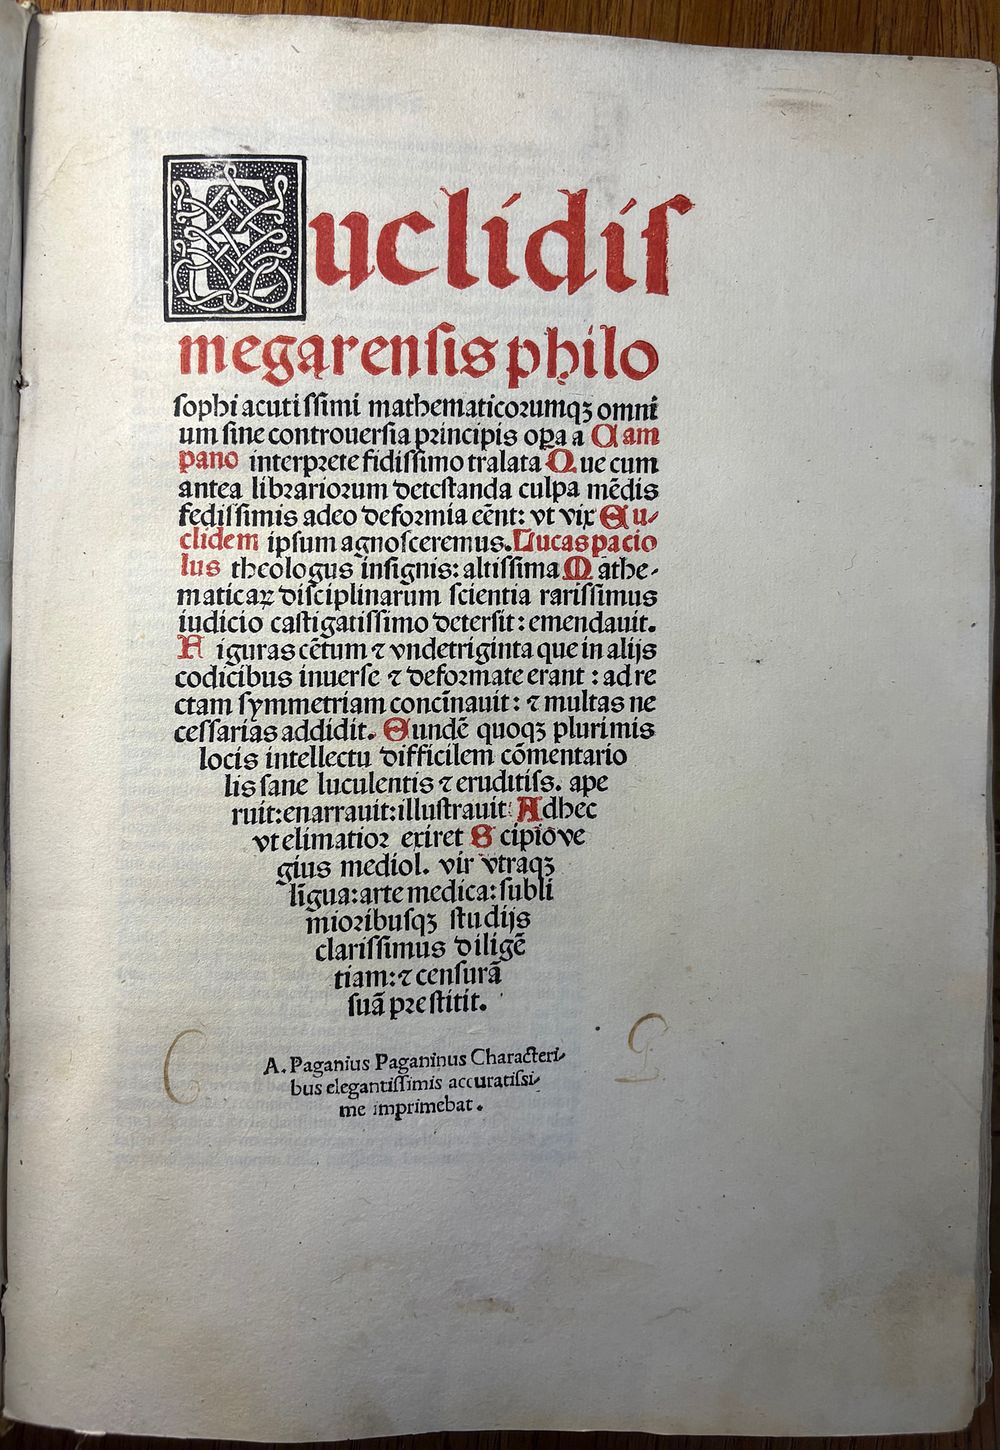 Euclidiſ
megarenſis philo
ſophi acutiſſimi mathematicoꝛumqꝫ omni
um ſine controuerſia pꝛincipis oꝑa a Cam
pano interpꝛete fidiſſimo tralata Que cum
antea libꝛarioꝛum deteſtanda culpa mẽdis
fediſſimis adeo defoꝛmia eẽnt: vt vix Eu⸗
clidem ipſum agnoſceremus. Lucas pacio
lus theologus inſignis: altiſſima Mathe⸗
maticaꝝ diſciplinarum ſcientia rariſſimus
iudicio caſtigatiſſimo deterſit: emendauit.
Figuras cẽtum ⁊ vndetriginta que in alijs
codicibus inuerſe ⁊ defoꝛmate erant: ad re
ctam ſymmetriam concĩnauit: ⁊ multas ne
ceſſarias addidit. Eundẽ quoqꝫ plurimis
locis intellectu difficilem cõmentario
lis ſane luculentis ⁊ eruditiſs. ape
ruit: enarrauit: illuſtrauit: Adhec
vt elimatioꝛ exiret Scipio ve
gius mediol. vir vtraqꝫ
lĩgua: arte medica: ſubli
mioꝛibuſqꝫ ſtudijs
clariſſimus diligẽ
tiam: ⁊ cenſurã
ſuã pꝛeſtitit.
A. Paganius Paganinus Characteri⸗
bus elegantiſſimis accuratiſsi⸗
me imprimebat.